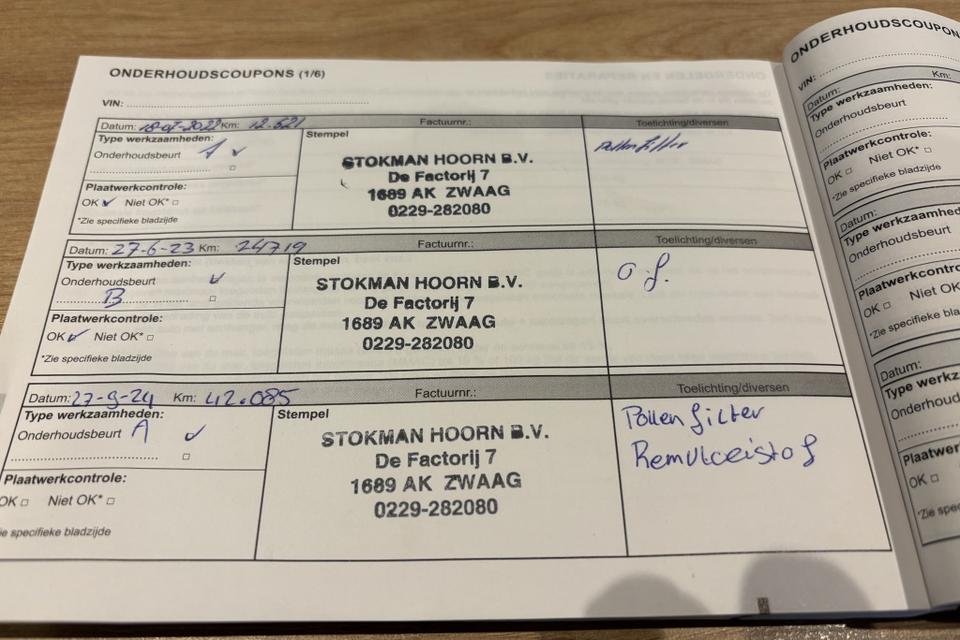 ONDERHOUDSCOUPONS (1/6)
VIN:
Datum: 18-07-2022 Km: 12.521 Factuurnr.: Toelichting/diversen
Type werkzaamheden: Stempel
Onderhoudsbeurt A
Pollenfilter
STOKMAN HOORN B.V.
De Factorij 7
1689 AK ZWAAG
0229-282080
Plaatwerkcontrole:
OK Niet OK*
*Zie specifieke bladzijde
Datum: 27-6-23 Km: 24719 Factuurnr.: Toelichting/diversen
Type werkzaamheden: Stempel
Onderhoudsbeurt
B
o.f.
STOKMAN HOORN B.V.
De Factorij 7
1689 AK ZWAAG
0229-282080
Plaatwerkcontrole:
OK Niet OK*
*Zie specifieke bladzijde
Datum: 27-9-24 Km: 42.085 Factuurnr.: Toelichting/diversen
Type werkzaamheden: Stempel
Onderhoudsbeurt A
Pollenfilter
Remvloeistof
STOKMAN HOORN B.V.
De Factorij 7
1689 AK ZWAAG
0229-282080
Plaatwerkcontrole:
OK Niet OK*
ie specifieke bladzijde
ONDERHOUDSCOUPON
VIN:
Datum: Km:
Type werkzaamheden:
Onderhoudsbeurt
Plaatwerkcontrole:
OK Niet OK*
*Zie specifieke bladzijde
Datum:
Type werkzaamhed
Onderhoudsbeurt
Plaatwerkcontro
OK Niet OK
*Zie specifieke bladz
Datum:
Type werkz
Onderhoud
Plaatwer
OK
*Zie spe